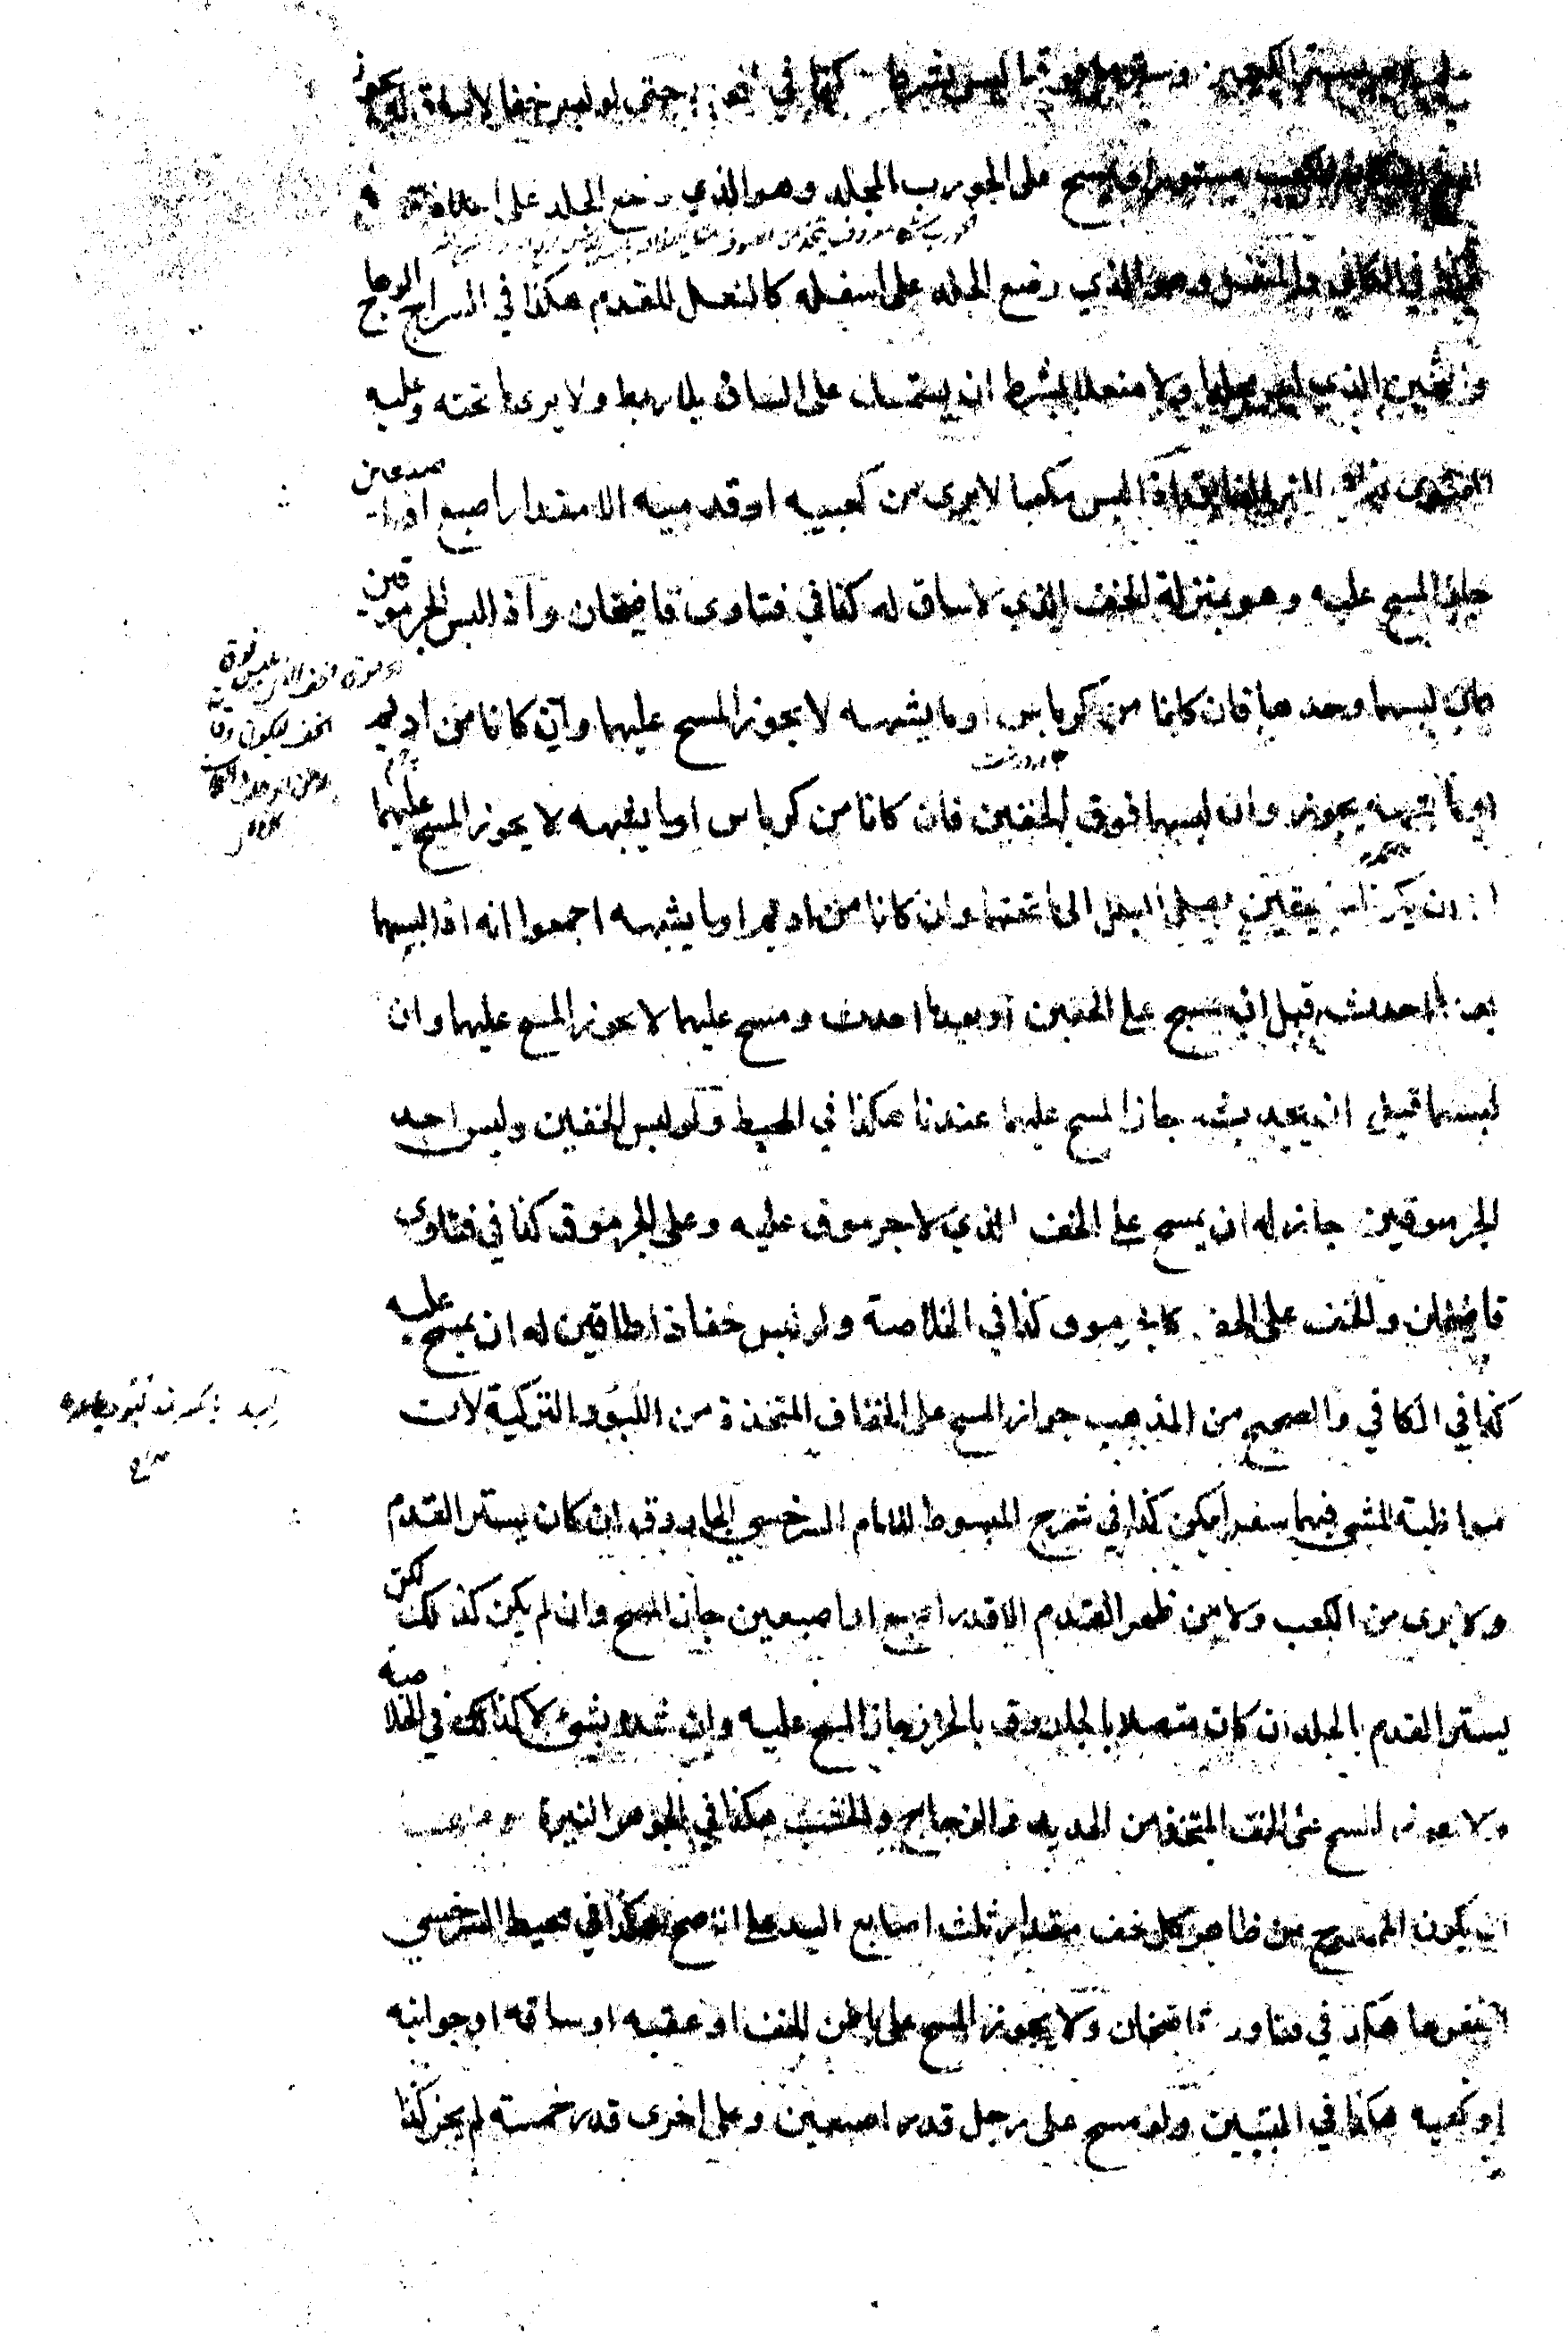 وستر ما فوقهما ليس بشرط كذا في حتى لو لبس خفا لا ساق له يجوز
المسح ان كان الكعب مستورا ويمسح على الجورب المجلد وهو الذي وضع الجلد على اعلاه
هكذا في الكافي والمنعل وهو الذي وضع الجلد على اسفله كالنعل للقدم هكذا في السراج الوهاج
والثخين الذي ليس مجلدا ولا منعلا بشرط ان يستمسك على الساق بلا ربط ولا يرى ما تحته وعليه
الفتوى كذا في النهر الفائق اذا لبس مكعبا لا يرى من كعبيه او قدميه الا مقدار اصبع او اصبعين
جاز المسح عليه وهو بمنزلة الخف الذي لا ساق له كذا في فتاوى قاضيخان واذا لبس الجرموقين
فان لبسهما وحدهما فان كانا من كرباس او ما يشبهه لا يجوز المسح عليهما وان كانا من اديم
او ما يشبهه يجوز وان لبسهما فوق الخفين فان كانا من كرباس او ما يشبهه لا يجوز المسح عليهما
الا ان يكونا رقيقين يصل البلل الى ما تحتهما وان كانا من اديم او ما يشبهه اجمعوا انه اذا لبسهما
بعد ما احدث قبل ان يمسح على الخفين او بعد ما احدث ومسح عليهما لا يجوز المسح عليهما وان
لبسهما قبل ان يحدث جاز المسح عليهما عندنا هكذا في المحيط ولو لبس الخفين ولبس احد
الجرموقين جاز له ان يمسح على الخف الذي لا جرموق عليه وعلى الجرموق كذا في فتاوى
قاضيخان والخف على الخف كالجرموق كذا في الخلاصة ولو لبس خفا ذا طاقين له ان يمسح عليه
كذا في الكافي والصحيح من المذهب جواز المسح على الخفاف المتخذة من اللبود التركية لان
مواظبة المشي فيها سفرا يمكن كذا في شرح المبسوط للامام السرخسي الجاروق ان كان يستر القدم
ولا يرى من الكعب ولا من ظهر القدم الا قدر اصبع او اصبعين جاز المسح وان لم يكن كذلك لكن
يستر القدم بالجلد ان كان متصلا بالجاروق بالخرز جاز المسح عليه وان شد بشيء لا كذا في الخلاصة
ولا يجوز المسح على الخف المتخذ من الحديد والزجاج والخشب هكذا في الجوهر النيرة
ان يكون المسح من ظاهر كل خف مقدار ثلث اصابع اليد على الاصح هكذا في محيط السرخسي
اصغرها هكذا في فتاوى قاضيخان ولا يجوز المسح على باطن الخف او عقبه او ساقه او جوانبه
او كعبه هكذا في التبيين ولو مسح على رجل قدر اصبعين وعلى اخرى قدر خمسة لم يجز كذا